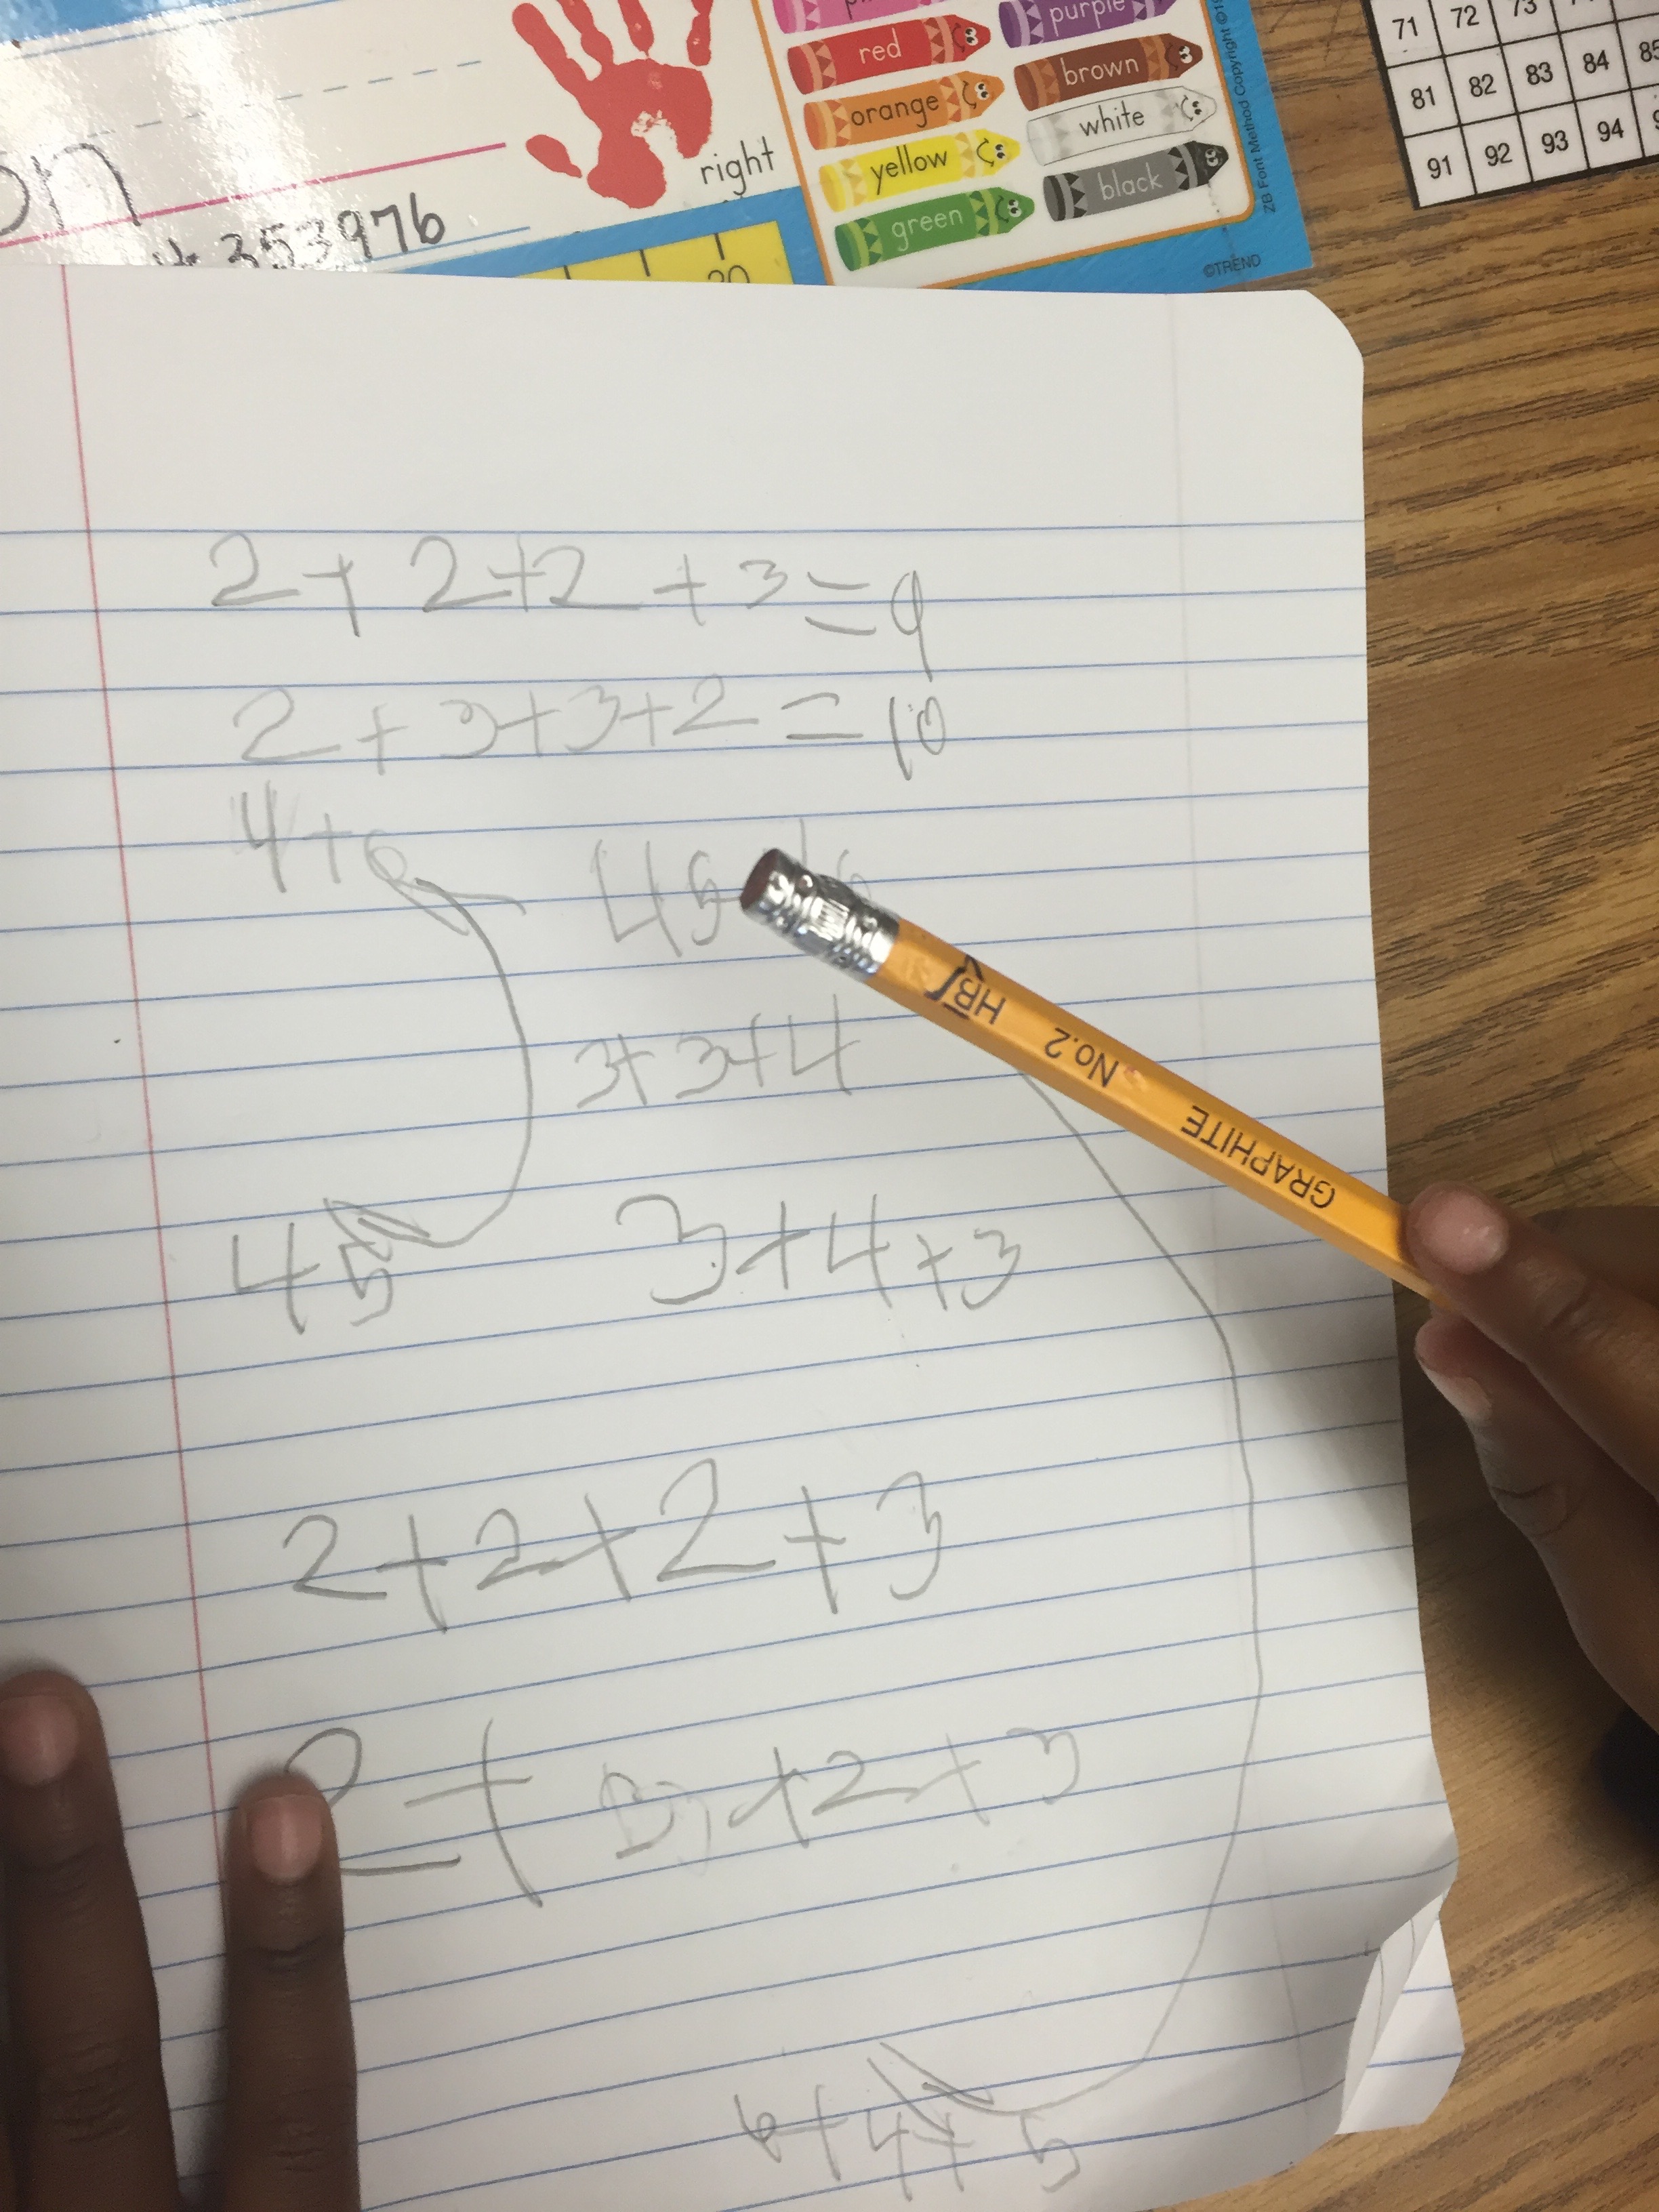 purple
red
brown
orange
white
yellow
black
green
right
ZB Font Method Copyright
©TREND
353976
20
71 72 73
81 82 83 84 85
91 92 93 94
2+2+2+3=9
2+3+3+2=10
4+6
45
3+3+4
45
3+4+3
2+2+2+3
2+3+2+3
6+4+5
HB
No.2
GRAPHITE